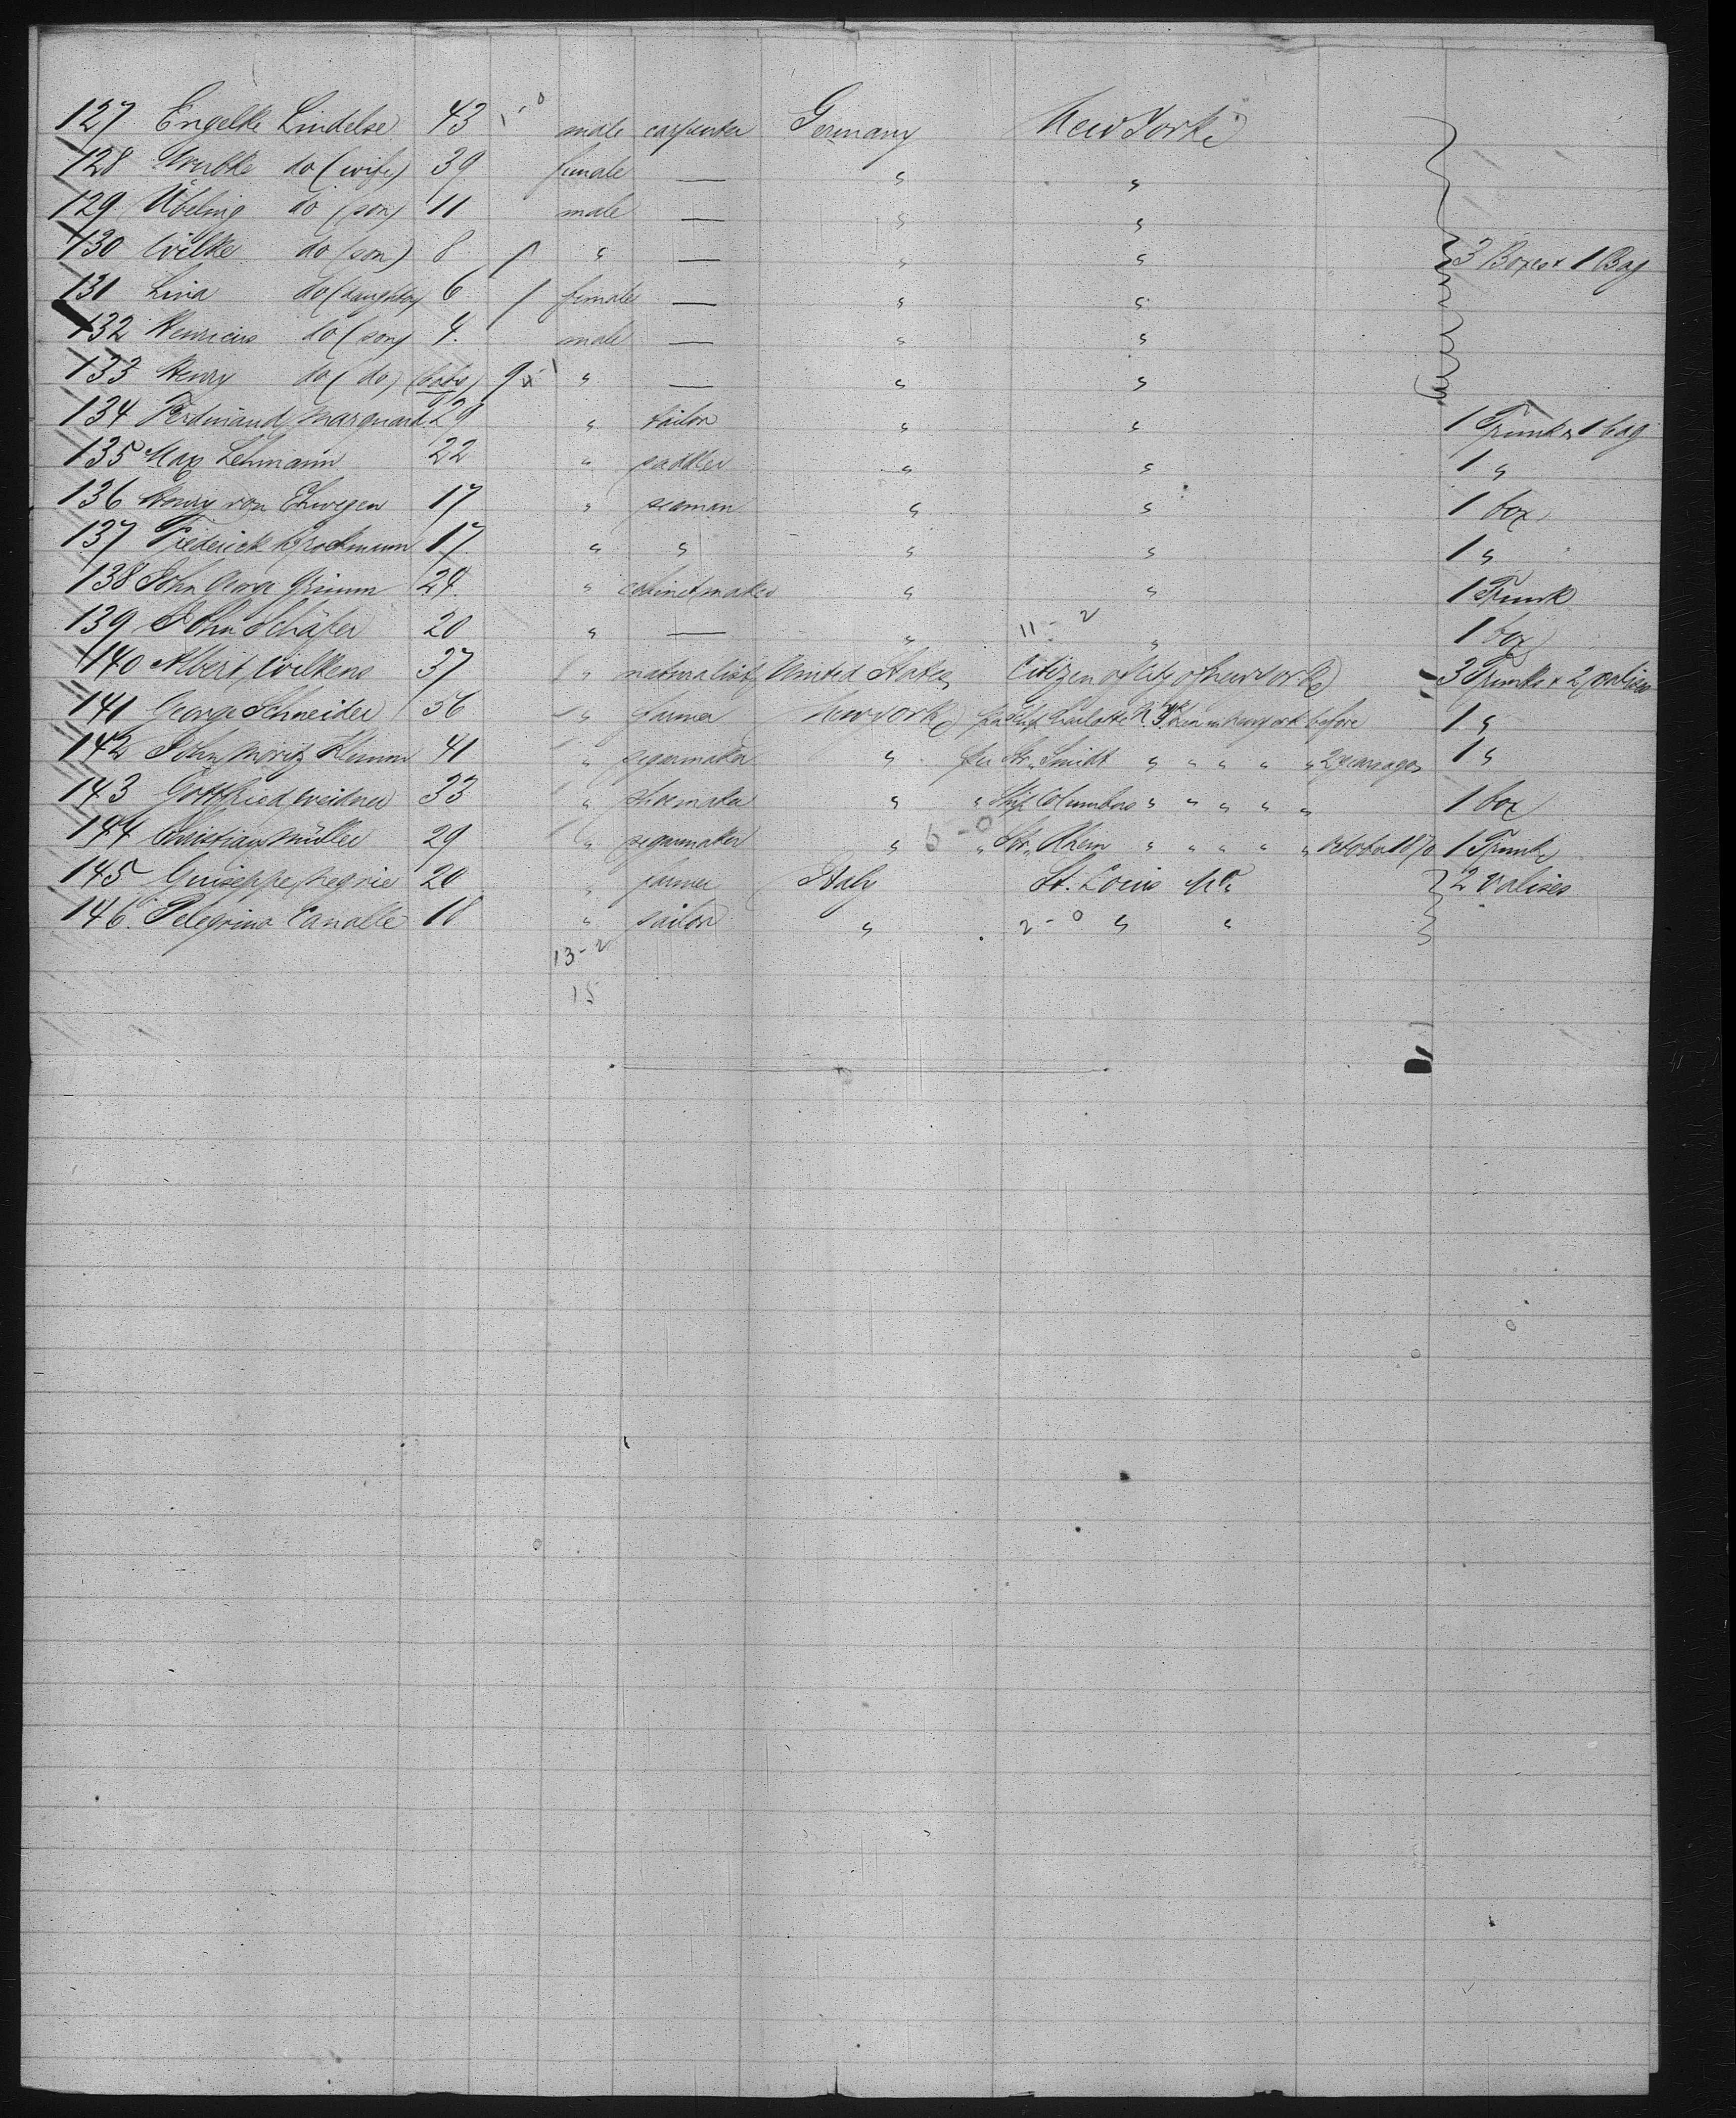 127 Engelke Lindelse 43 male carpenter Germany New York
128 do (wife) 39 female — " "
129 Übeling do (son) 11 male — " "
130 Wilke do (son) 8 " — " " 3 Boxes & 1 Bag
131 Lina do (daughter) 6 female — " "
132 Henricus do (son) 4. male — " "
133 Henry do (do) (baby) 9 " — " "
134 Ferdinand Marquard 29 " tailor " " 1 Trunk & 1 bag
135 Max Lehmann 22 " saddler " " 1 "
136 Henry von 17 " seaman " " 1 box
137 Frederick 17 " " " " 1 "
138 John George Grimm 24. " cabinetmaker " " 1 Trunk
11 - 2
139 John Schäfer 20 " — " " 1 box
140 Albert Wilkens 37 " naturalist United States Citizen of City of New York 3 Trunks & 2 valises
141 George Schneider 56 " farmer New York per Ship Charlotte been in New York before 1 "
142 John Moritz Klemm 41 " segarmaker " per Str. Smidt " " " " " 2 years ago 1 "
143 Gottfried Weidner 33 " shoemaker " " Ship Columbus " " " " " 1 box
144 Christian Müller 29 " segarmaker " 5 - 0 " Str. Rhein " " " " " October 1870 1 Trunk
145 Guiseppe Negrie 20 " farmer Italy St. Louis Mo. 2 valises
146. Pelegrino Canalle 18 " sailor " 2 - 0 " "
13 - 2
15